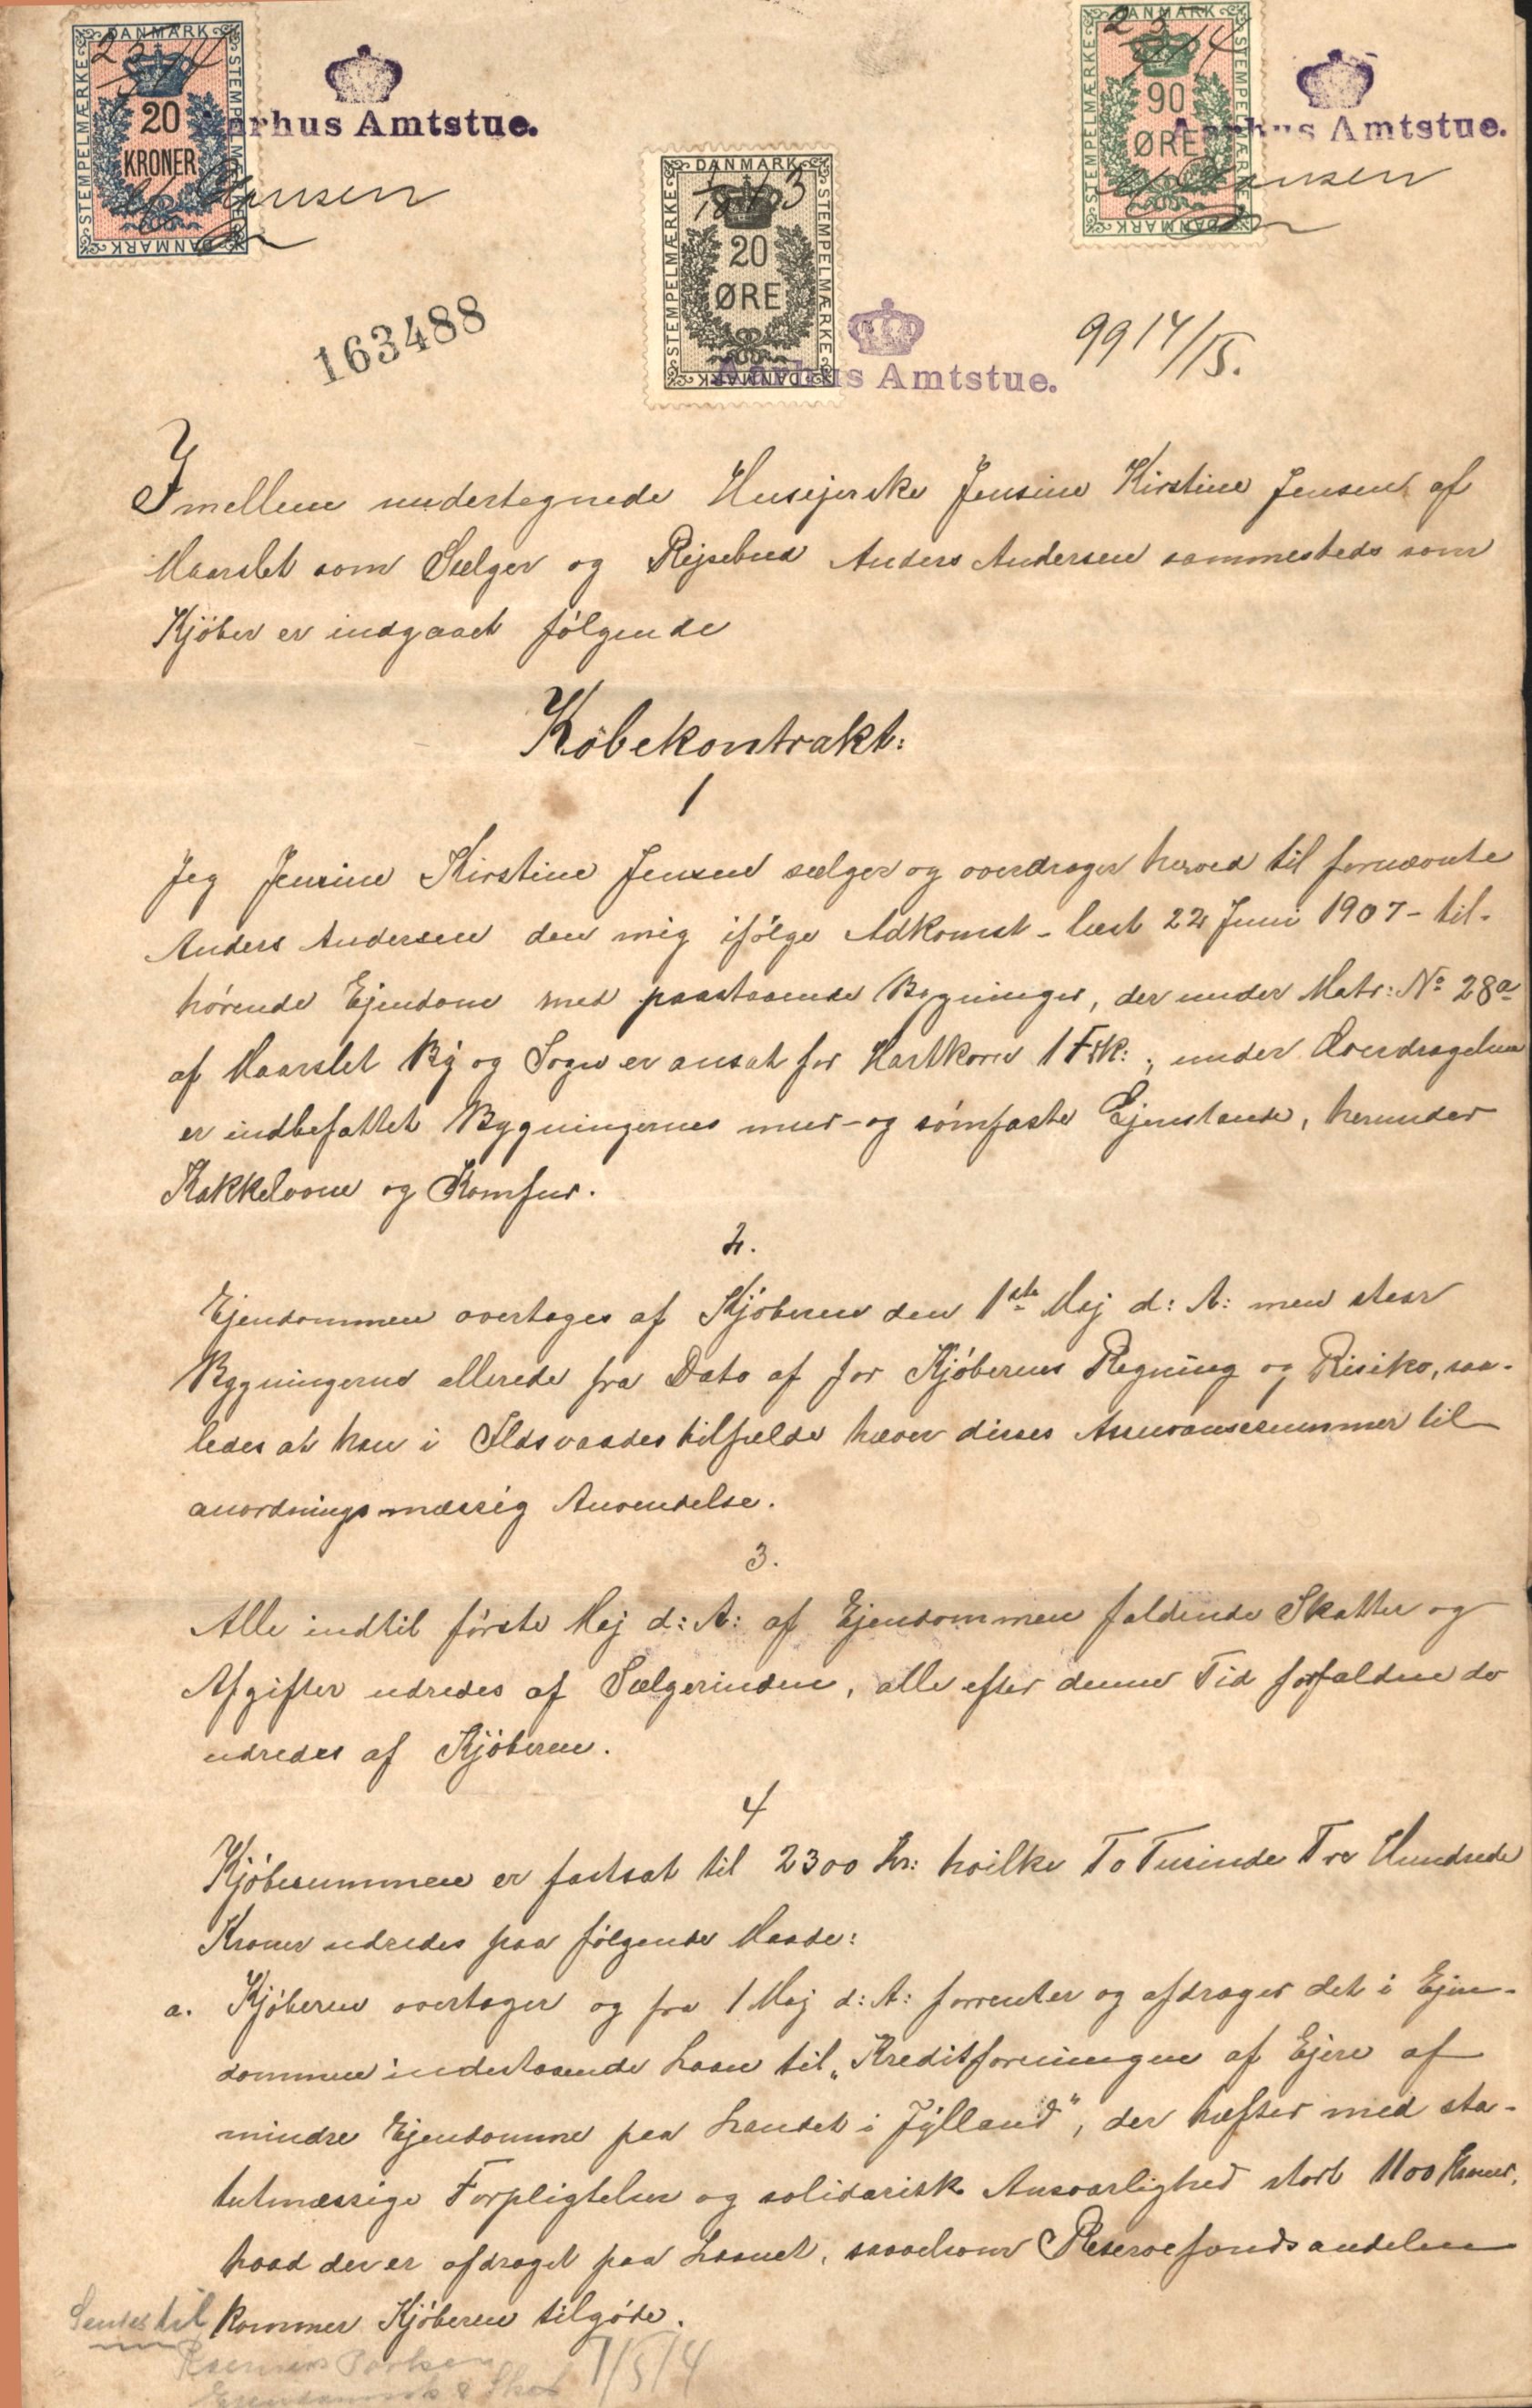 DANMARK
STEMPELMÆRKE
20
KRONER
STEMPELMÆRKE
DANMARK
2/3 14
Aarhus Amtstue.
Hansen
DANMARK
STEMPELMÆRKE
90
ØRE
STEMPELMÆRKE
DANMARK
2/3 14
Aarhus Amtstue.
Hansen
DANMARK
STEMPELMÆRKE
20
ØRE
STEMPELMÆRKE
DANMARK
Aarhus Amtstue.
163488
99 14/15.
Imellem undertegnede Husejerske Jensine Kirstine Jensen af
Maarslet som Sælger og Rejsebud Anders Andersen sammesteds som
Kjøber er indgaaet følgende
Købekontrakt:
1
Jeg Jensine Kirstine Jensen sælger og overdrager herved til fornævnte
Anders Andersen den mig ifølge Adkomst - læst 22 Juni 1907 - til-
hørende Ejendom med paastaaende Bygninger, der under Matr: No 28a
af Maarslet By og Sogn er ansat for Hartkorn 1 Fdk: ; under Overdragelsen
er indbefattet Bygningernes mur- og sømfaste Gjenstande, herunder
Kakkelovne og Komfur.
2.
Ejendommen overtages af Kjøberen den 1ste Maj d: A: men staar
Bygningerne allerede fra Dato af for Kjøberens Regning og Risiko, saa-
ledes at han i Ildsvaadestilfælde hæver disses Assurancesummer til
anordningsmæssig Anvendelse.
3.
Alle indtil første Maj d: A: af Ejendommen faldende Skatter og
Afgifter udredes af Sælgerinden, alle efter denne Tid forfaldende
udredes af Kjøberen.
4
Kjøbesummen er fastsat til 2300 Kr: hvilke To Tusinde Tre Hundrede
Kroner udredes paa følgende Maade:
a. Kjøberen overtager og fra 1 Maj d: A: forrenter og afdrager det i Ejen-
dommen indestaaende Laan til „Kreditforeningen af Ejere af
mindre Ejendomme paa Landet i Jylland", der hæfter med sta-
tutmæssige Forpligtelser og solidarisk Ansvarlighed stort 1100 Kroner,
hvad der er afdraget paa Laanet, saavelsom Reservefondsandelen
kommer Kjøberen tilgode.
Sendes til
7/5 14